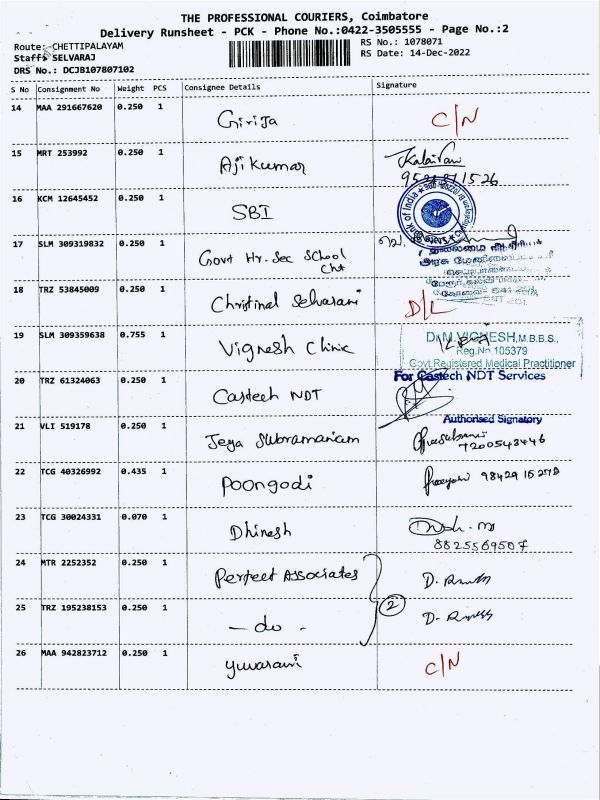 THE PROFESSIONAL COURIERS, Coimbatore
Delivery Runsheet - PCK - Phone No.:0422-3505555 - Page No.:2
Route: CHETTIPALAYAM
RS No.: 1078071
Staff: SELVARAJ
RS Date: 14-Dec-2022
DRS No.: DCJB107807102
S No Consignment No Weight PCS Consignee Details Signature
14 MAA 291667620 0.250 1 Girija C/N
15 MRT 253992 0.250 1 Ajikumar
16 KCM 12645452 0.250 1 SBI
Bank of India
17 SLM 309319832 0.250 1 Govt Hr. Sec School
Cht
18 TRZ 53845009 0.250 1 Christinal Selvarani D/L
19 SLM 309359638 0.755 1 Vignesh Clinic
Dr.M.VIGNESH,M.B.B.S.,
Reg.No 105379
Govt Registered Medical Practitioner
20 TRZ 61324063 0.250 1 Castech NDT
For Castech NDT Services
Authorised Signatory
21 VLI 519178 0.250 1 Jeya Subramaniam
7200543446
22 TCG 40326992 0.435 1 Poongodi
23 TCG 30024331 0.070 1 Dhinesh
8825569507
24 MTR 2252352 0.250 1 Perfect Associates
2
25 TRZ 195238153 0.250 1 - do -
26 MAA 942823712 0.250 1 Yuvarani C/N